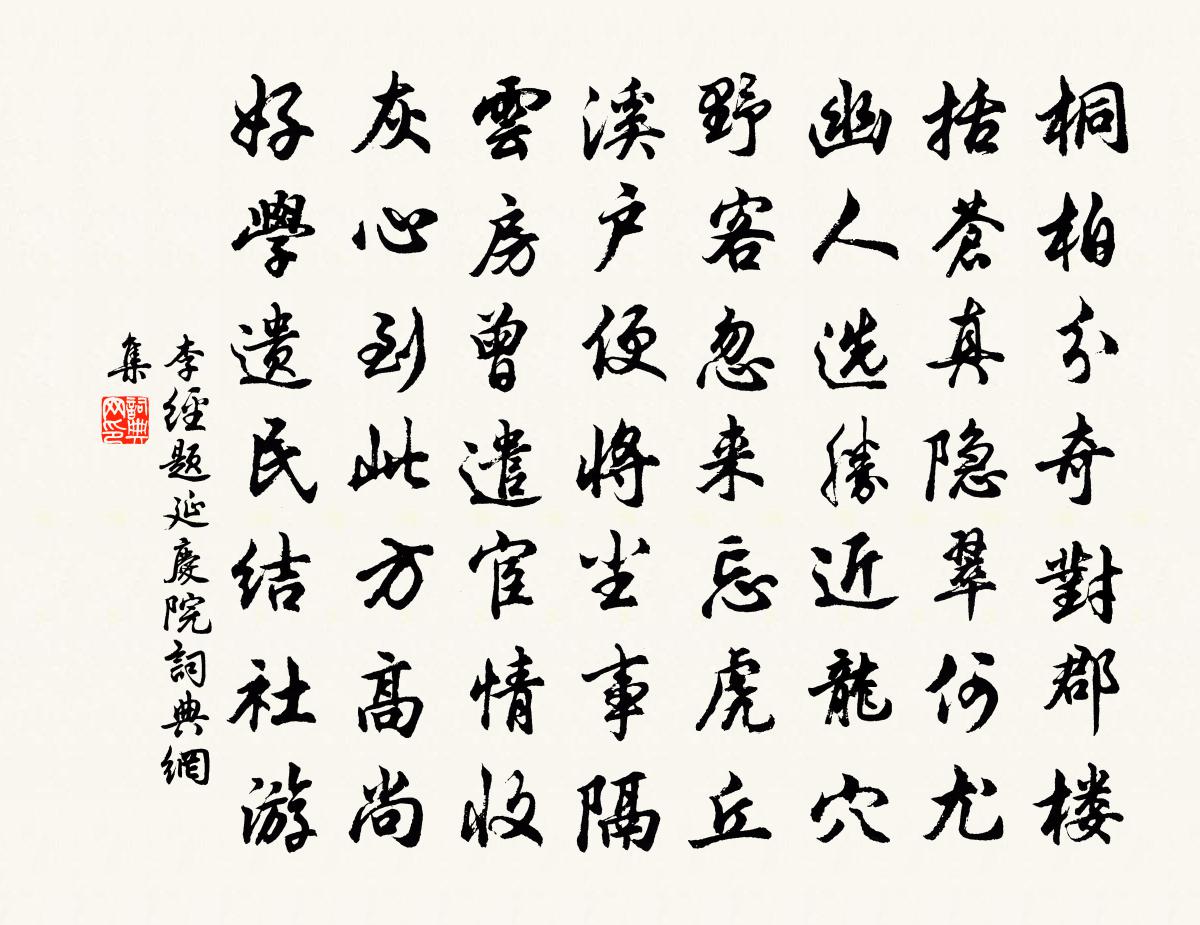 桐柏分奇對郡楼
括蒼真隐翠何尤
幽人选勝近龍穴
野客忽来忘虎丘
溪户便将坐事隔
雲房曾遣宦情收
灰心到此方高尚
好學遗民结社游
李經题延慶院詞典網
集
詞典网印